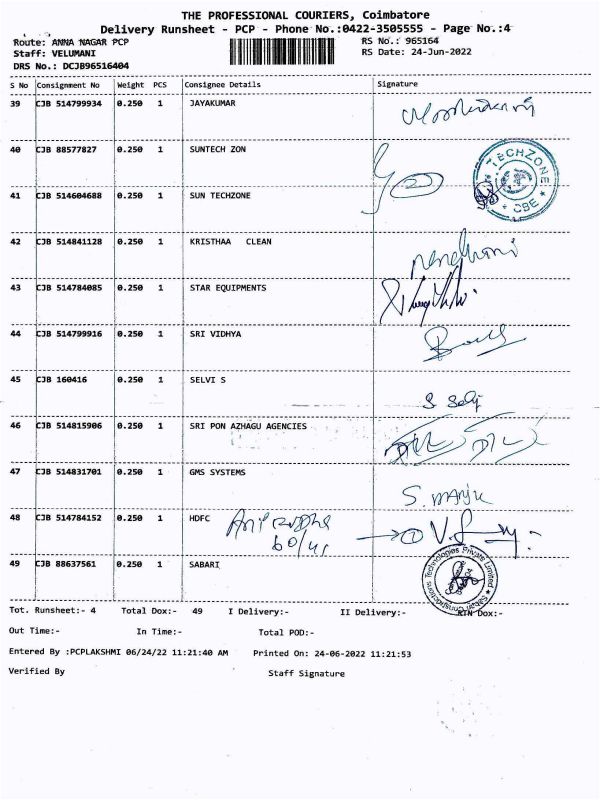 THE PROFESSIONAL COURIERS, Coimbatore
Delivery Runsheet - PCP - Phone No.:0422-3505555 - Page No.:4
Route: ANNA NAGAR PCP RS No.: 965164
Staff: VELUMANI RS Date: 24-Jun-2022
DRS No.: DCJB96516404
S No Consignment No Weight PCS Consignee Details Signature
39 CJB 514799934 0.250 1 JAYAKUMAR
40 CJB 88577827 0.250 1 SUNTECH ZON
TECHZONE * CBE *
41 CJB 514604688 0.250 1 SUN TECHZONE
42 CJB 514841128 0.250 1 KRISTHAA CLEAN
43 CJB 514784085 0.250 1 STAR EQUIPMENTS
44 CJB 514799916 0.250 1 SRI VIDHYA
45 CJB 160416 0.250 1 SELVI S
46 CJB 514815906 0.250 1 SRI PON AZHAGU AGENCIES
47 CJB 514831701 0.250 1 GMS SYSTEMS S. Manju
48 CJB 514784152 0.250 1 HDFC
49 CJB 88637561 0.250 1 SABARI Technologies Private Limited
Tot. Runsheet:- 4 Total Dox:- 49 I Delivery:- II Delivery:- RTN Dox:-
Out Time:- In Time:- Total POD:-
Entered By :PCPLAKSHMI 06/24/22 11:21:40 AM Printed On: 24-06-2022 11:21:53
Verified By Staff Signature